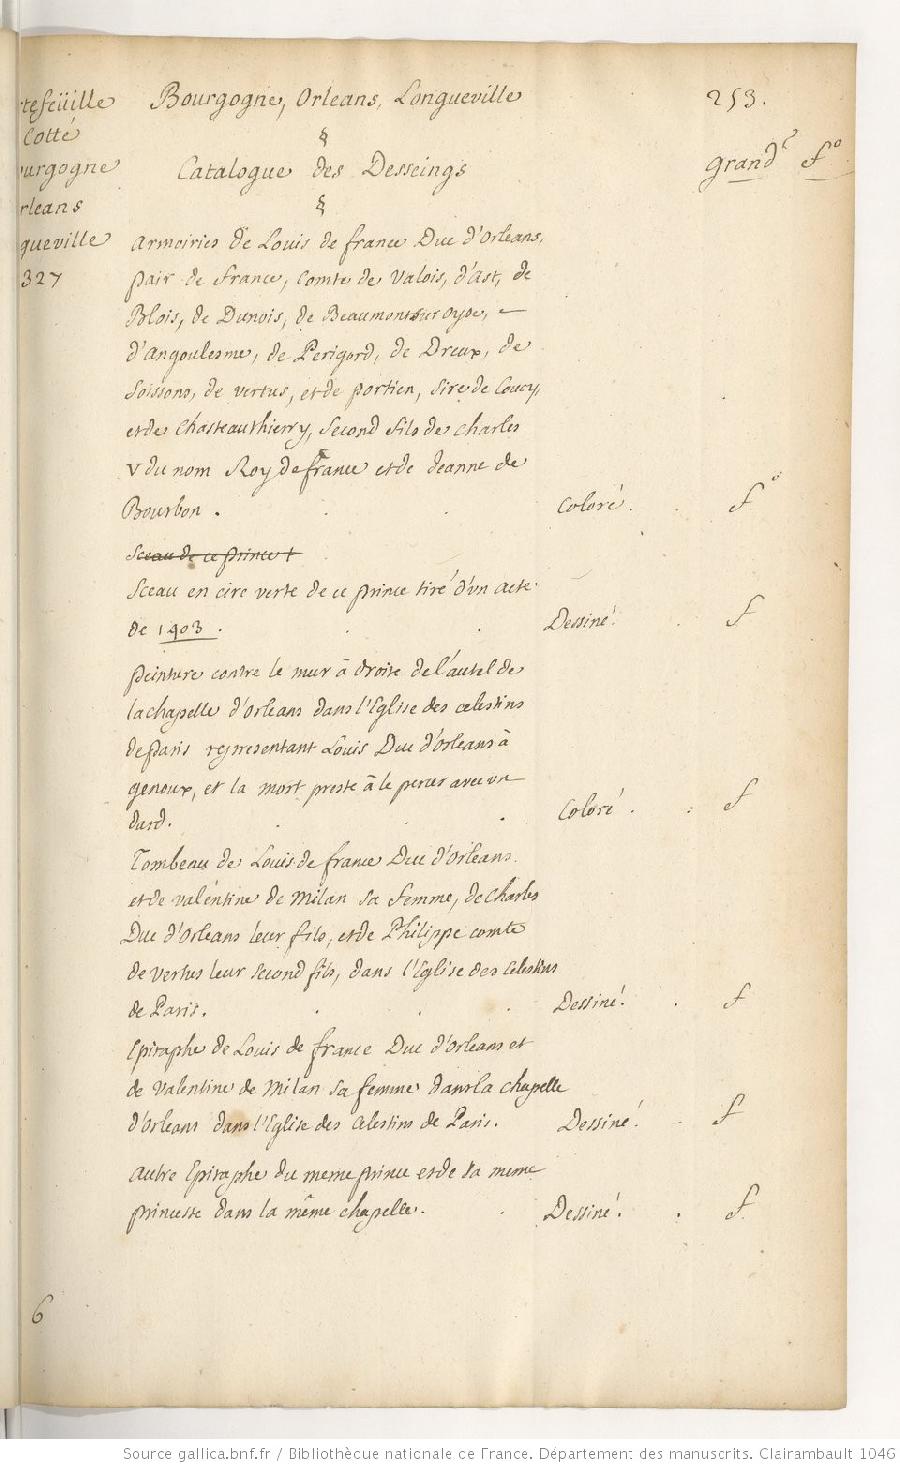 tefeüille Bourgogne, Orleans, Longueville 253.
Cotté §
urgogne Catalogue des Desseings grand f°
rleans §
gueville Armoiries de Louis de france Duc d'Orleans,
327 pair de France, Comte de Valois, d'Ast, de
Blois, de Dunois, de Beaumont sur oyse,
d'Angoulesme, de Perigord, de Dreux, de
Soissons, de vertus, et de portien, Sire de Coucy,
et de Chasteauthierry, second fils de charles
V du nom Roy de france et de Jeanne de
Bourbon . Coloré . f°
Sceau de ce prince
Sceau en cire verte de ce prince tiré d'vn acte
de 1403 . Dessiné . f
peinture contre le mur à droite de l'autel de
la chapelle d'Orleans dans l'Eglise des celestins
de paris representant Louis Duc d'Orleans à
genoux, et la mort preste à le percer avec vn
dard. Coloré . f
Tombeau de Louis de france Duc d'Orleans
et de valentine de Milan sa femme, de Charles
Duc d'Orleans leur fils, et de Philippe comte
de vertus leur second fils, dans l'Eglise des Celestins
de Paris. Dessiné . f
Epitaphe de Louis de france Duc d'Orleans et
de Valentine de Milan sa femme dans la chapelle
d'Orleans dans l'Eglise des Celestins de Paris. Dessiné . f
Autre Epitaphe du meme prince et de la meme
princesse dans la même chapelle. Dessiné . f
6
Source gallica.bnf.fr / Bibliothèque nationale de France. Département des manuscrits. Clairambault 1046